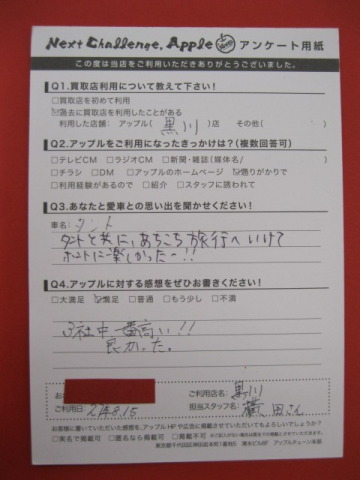 Next Challenge, Apple アンケート用紙
この度は当店をご利用いただきありがとうございました。
Q1.買取店利用について教えて下さい!
□買取店を初めて利用
☑過去に買取店を利用したことがある
利用した店舗: アップル( 黒川 )店 その他( )
Q2.アップルをご利用になったきっかけは?(複数回答可)
□テレビCM □ラジオCM □新聞・雑誌(媒体名/ )
□チラシ □DM □アップルのホームページ ☑通りがかりで
□利用経験があるので □紹介 □スタッフに誘われて
Q3.あなたと愛車との思い出を聞かせください!
車名: タント
タントと共に、あちこち旅行へいけて
ホントに楽しかったー!!
Q4.アップルに対する感想をぜひお書きください!
□大満足 ☑満足 □普通 □もう少し □不満
3社中一番高い!!
良かった。
お
ご利用店名: 黒川
ご利用日 27.8.15
担当スタッフ名: 横田さん
お客様に書いていただいた感想を、アップルHPや広告に掲載させていただいてもよろしいでしょうか?
□実名で掲載可 □匿名なら掲載可 □掲載不可
アップルチェーン本部